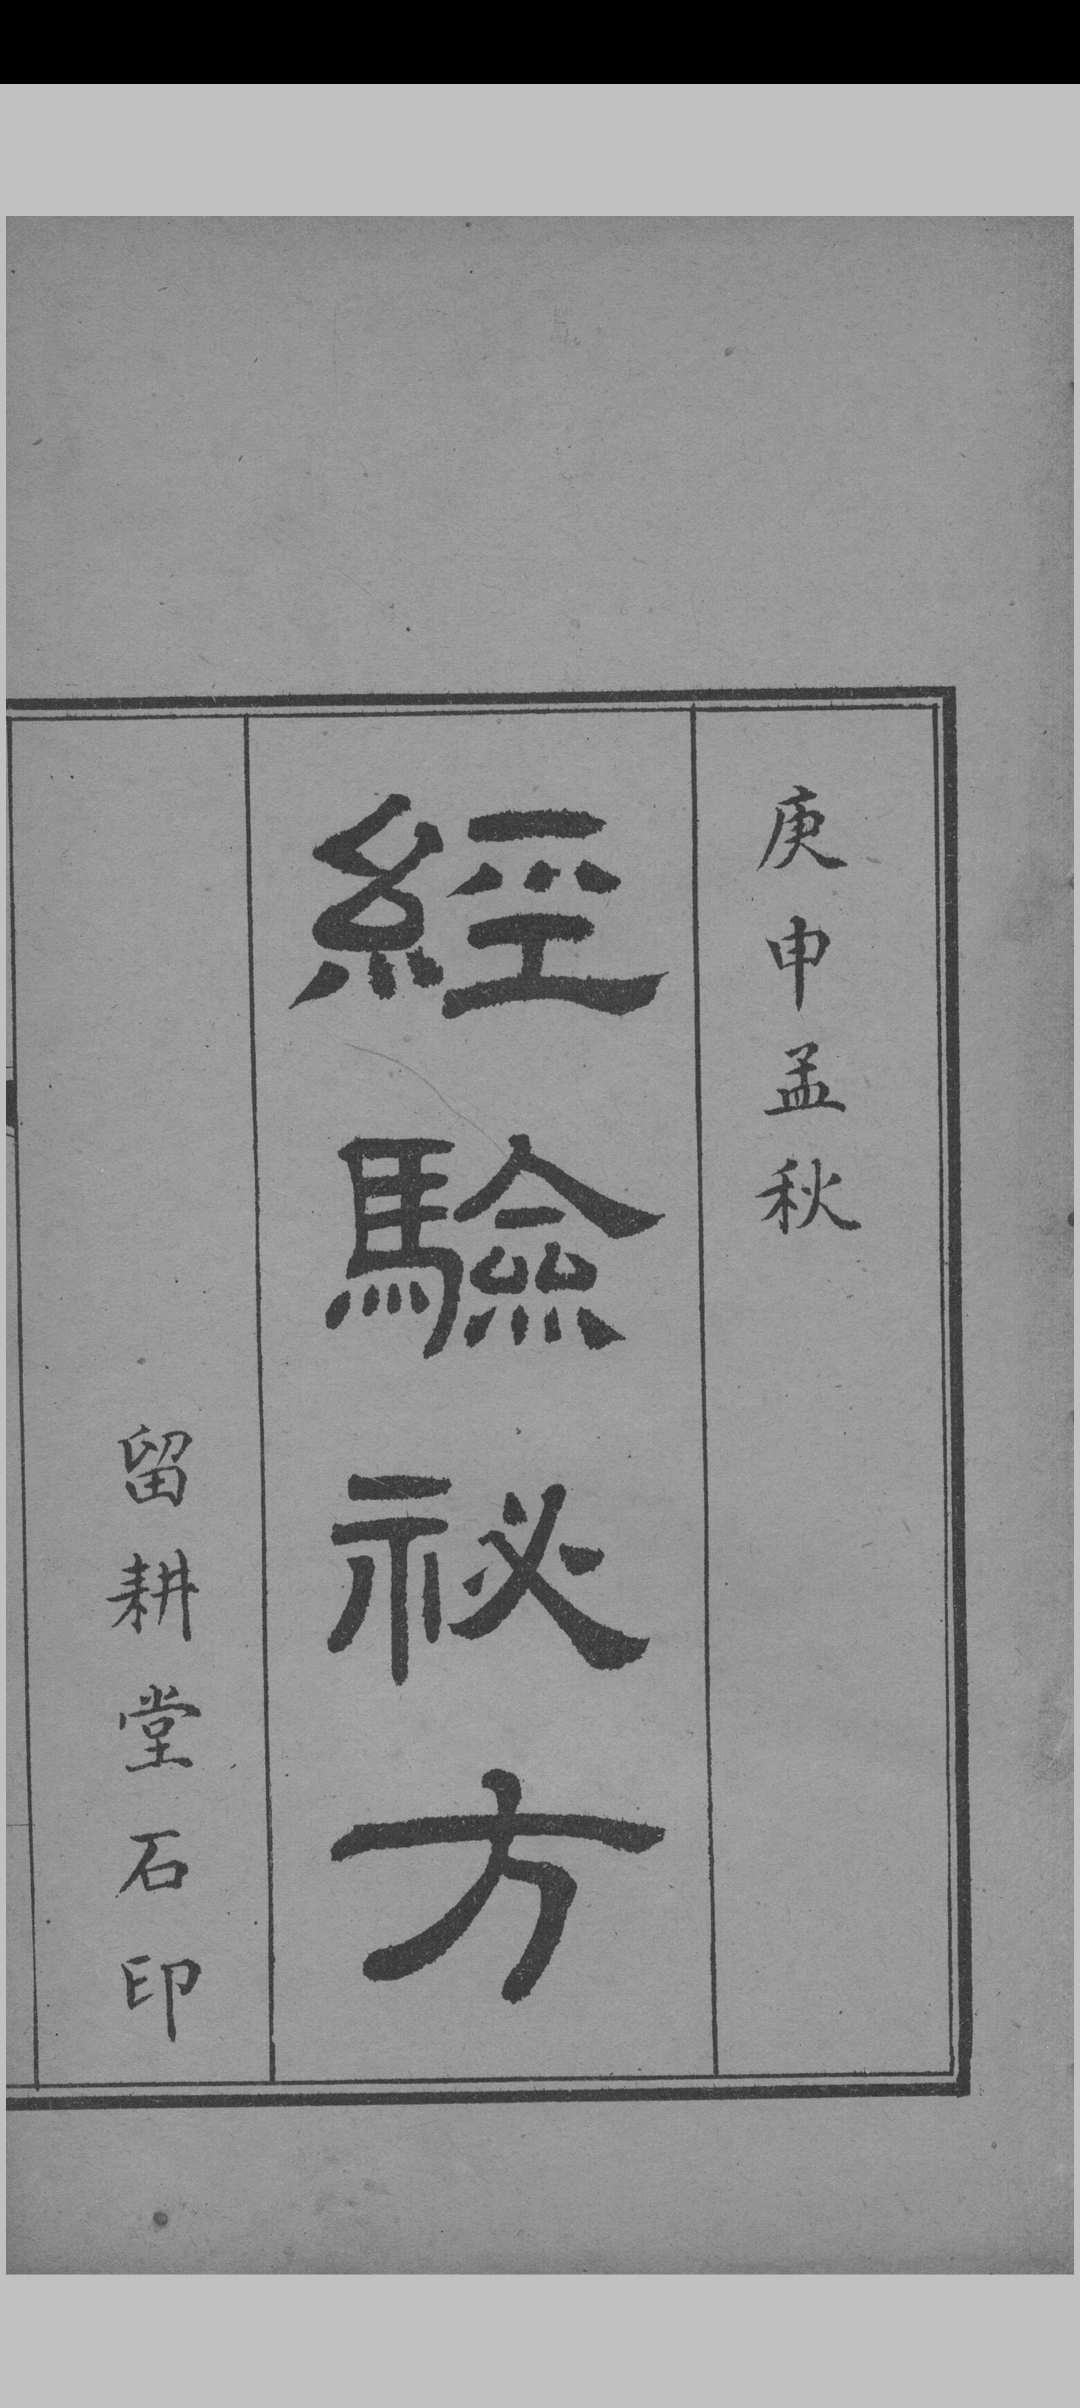 庚申孟秋
經驗祕方
留耕堂石印